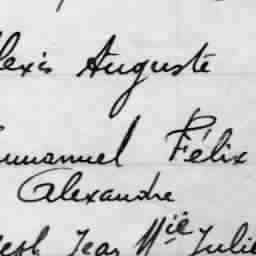 lexis Auguste
mmanuel Félix
Alexandre
Jean Mie Julie